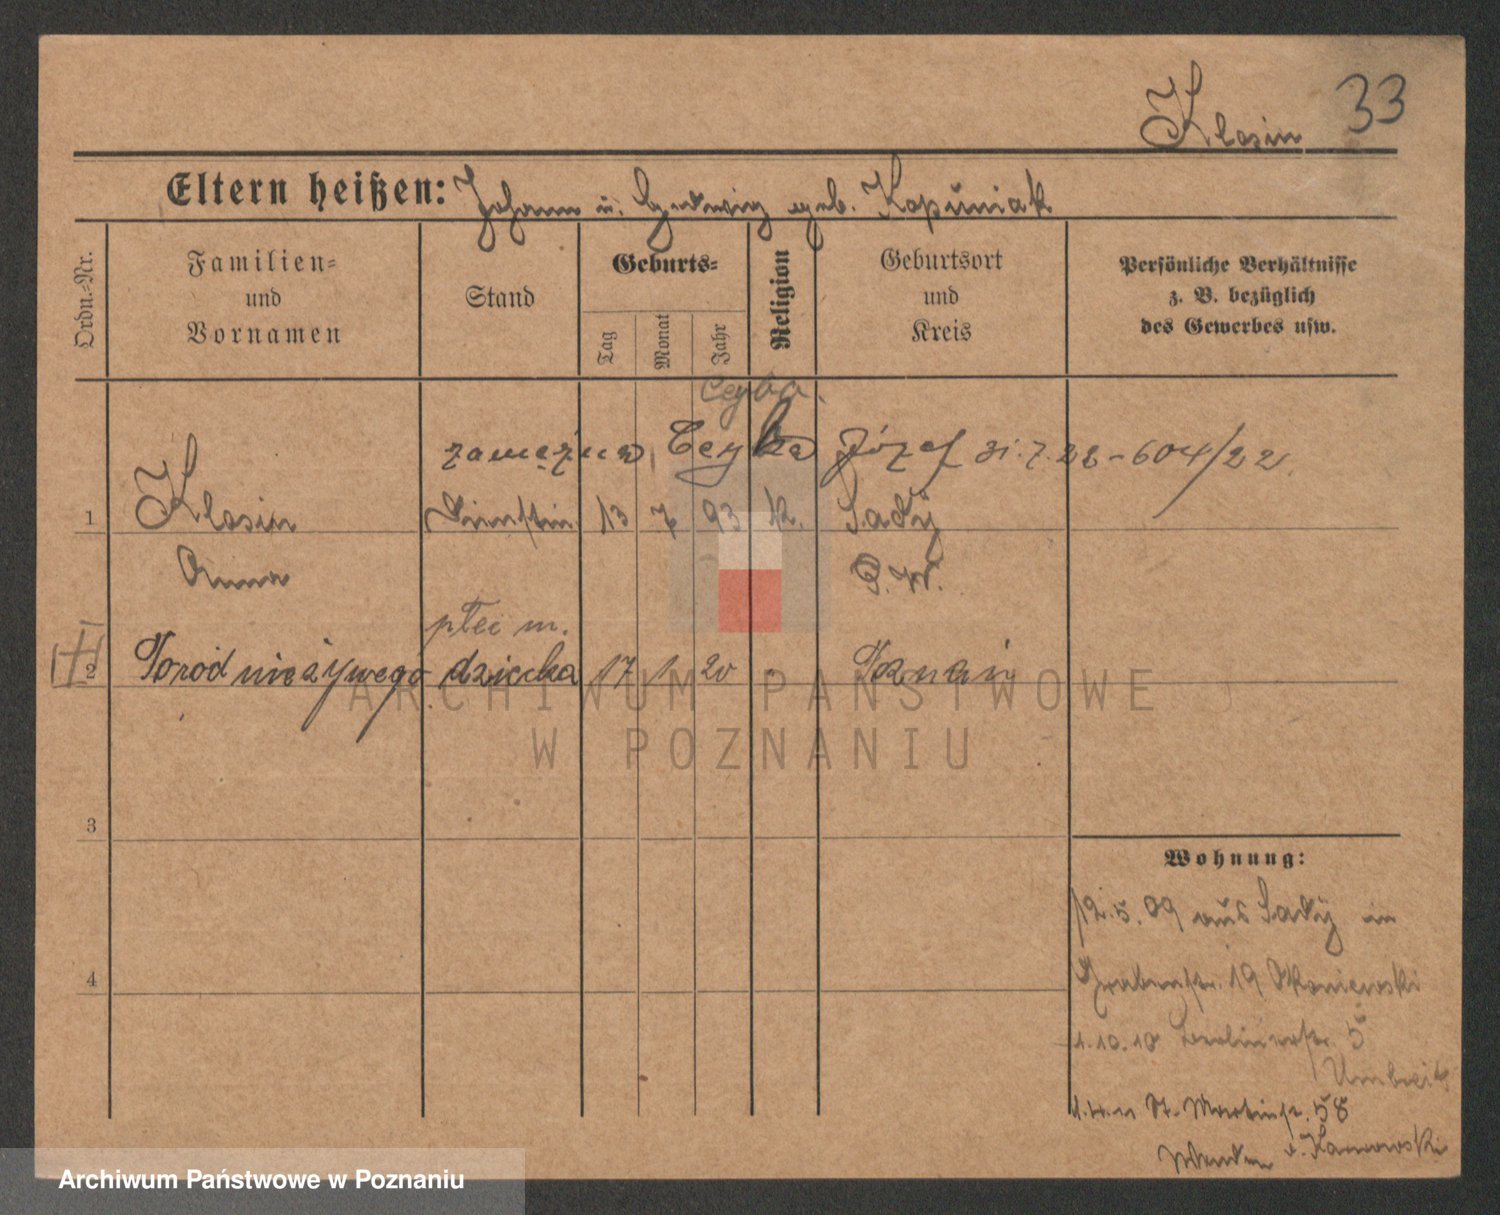 33
Klosin
Eltern heißen: Johann u. Hedwig geb. Kopuniak
Ordn.-Nr.
Familien-
und
Vornamen
Stand
Geburts-
Tag
Monat
Jahr
Religion
Geburtsort
und
Kreis
Persönliche Verhältnisse
z. B. bezüglich
des Gewerbes usw.
Ceyba.
zamężna Ceyba Józef 31.7.22-604/22
1 Klosin 13 7 93 k. Sady
Anna P. W.
płci m.
2 Poród nieżywego dziecka 17 1 20 Poznań
3
4
Wohnung:
12.5.09 aus Sady in
Grabenstr. 19
1.10.10 Berlinerstr. 5
Umbreit
St. Martinstr. 58
ARCHIWUM PAŃSTWOWE
W POZNANIU
Archiwum Państwowe w Poznaniu